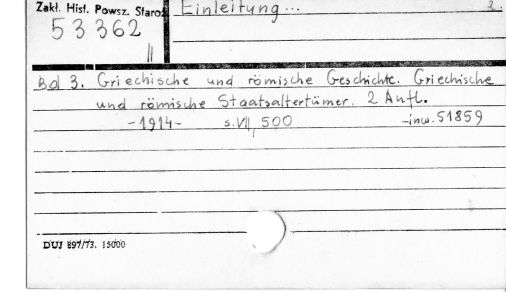 Zakł. Hist. Powsz. Staroż
Einleitung... 2.
53362
11
Bd 3. Griechische und römische Geschichte. Griechische
und römische Staatsaltertümer. 2 Aufl.
-1914- s.VII, 500 -inw. 51859
DUJ 897/73. 15000